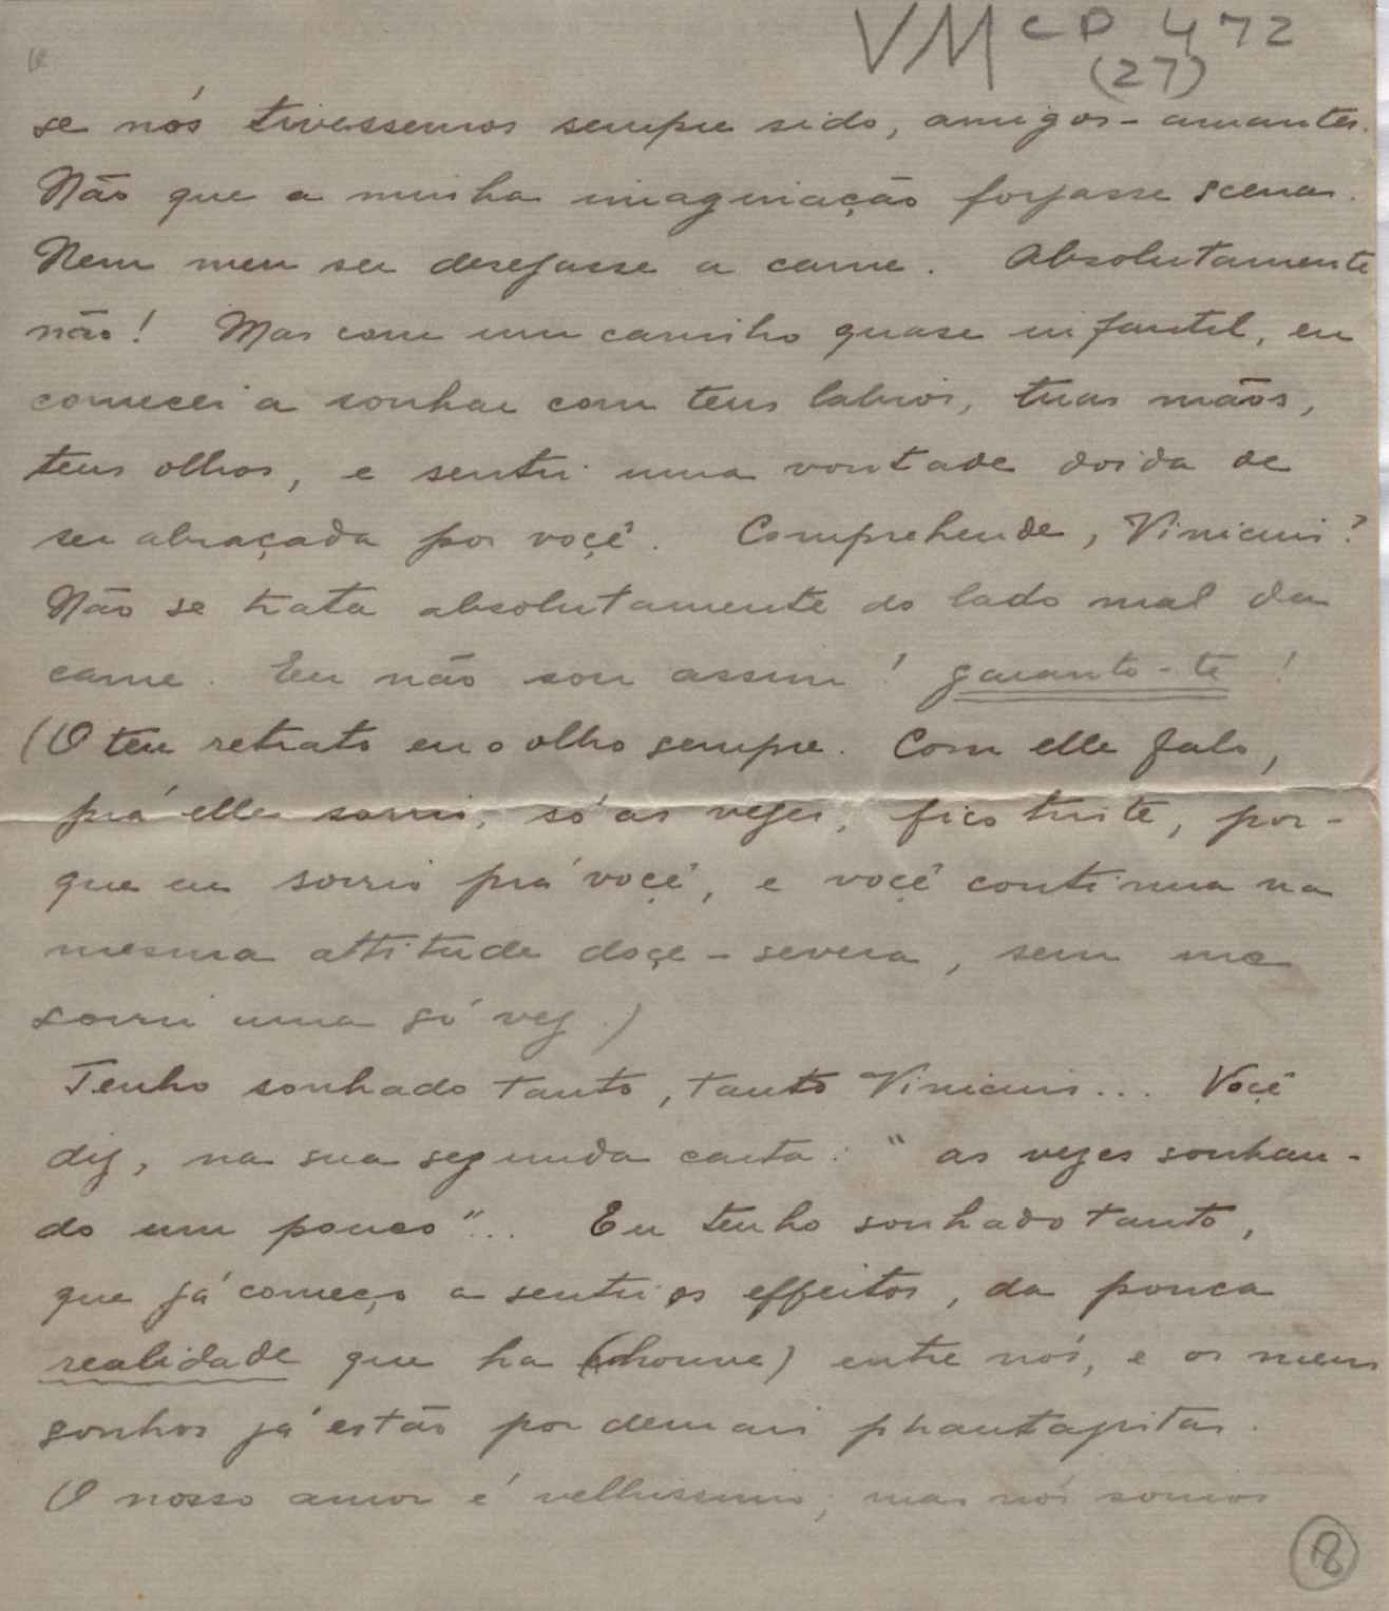 VMCP 472
(27)
se nós tivessemos sempre sido, amigos-amantes.
Não que a minha imaginação forjasse scenas.
Nem meu ser desejasse a carne. Absolutamente
não! Mas com um carinho quase infantil, eu
comecei a sonhar com teus labios, tuas mãos,
teus olhos, e senti uma vontade doida de
ser abraçada por voçê. Comprehende, Vinicius?
Não se trata absolutamente do lado mal da
carne. Eu não sou assim! garanto-te!
(O teu retrato eu o olho sempre. Com elle falo,
prá elle sorrio, só as vejes, fico triste, por-
que eu sorrio prá voçê, e voçê continua na
mesma attitude doçe-severa, sem me
sorrir uma só vej.)
Tenho sonhado tanto, tanto Vinicius... Voçê
dij, na sua segunda carta: "as vezes sonhan-
do um pouco"... Eu tenho sonhado tanto,
que já começo a sentir os effeitos, da pouca
realidade que ha (houve) entre nós, e os meus
sonhos já estão por demais phantasistas.
O nosso amor é velhissimo, mas nós somos
8